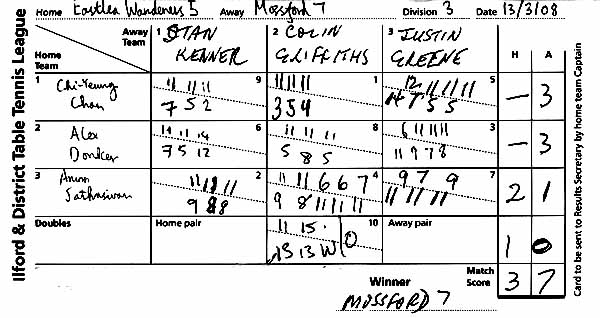 Ilford & District Table Tennis League
Home Eastlea Wanderers 5 Away Mossford 7 Division 3 Date 13/3/08
Away Team 1 STAN KENNER 2 COLIN GRIFFITHS 3 JUSTIN GREENE H A
Home Team
1 Chi-Yeung Chan 9 1 5 — 3
11 11 11 11 11 11 12 11 11 11
7 5 2 3 5 4 14 7 5 5
2 Alex 6 8 3 — 3
11 11 14 11 11 11 6 11 11 11
7 5 12 5 8 5 11 9 7 8
3 Arun 2 4 7 2 1
11 11 11 11 11 6 6 7 9 7 9
9 8 8 9 8 11 11 11 11 11 11
Doubles Home pair 10 Away pair 1 0
11 15
13 W/O
Winner Match Score 3 7
MOSSFORD 7
Card to be sent to Results Secretary by Home team Captain